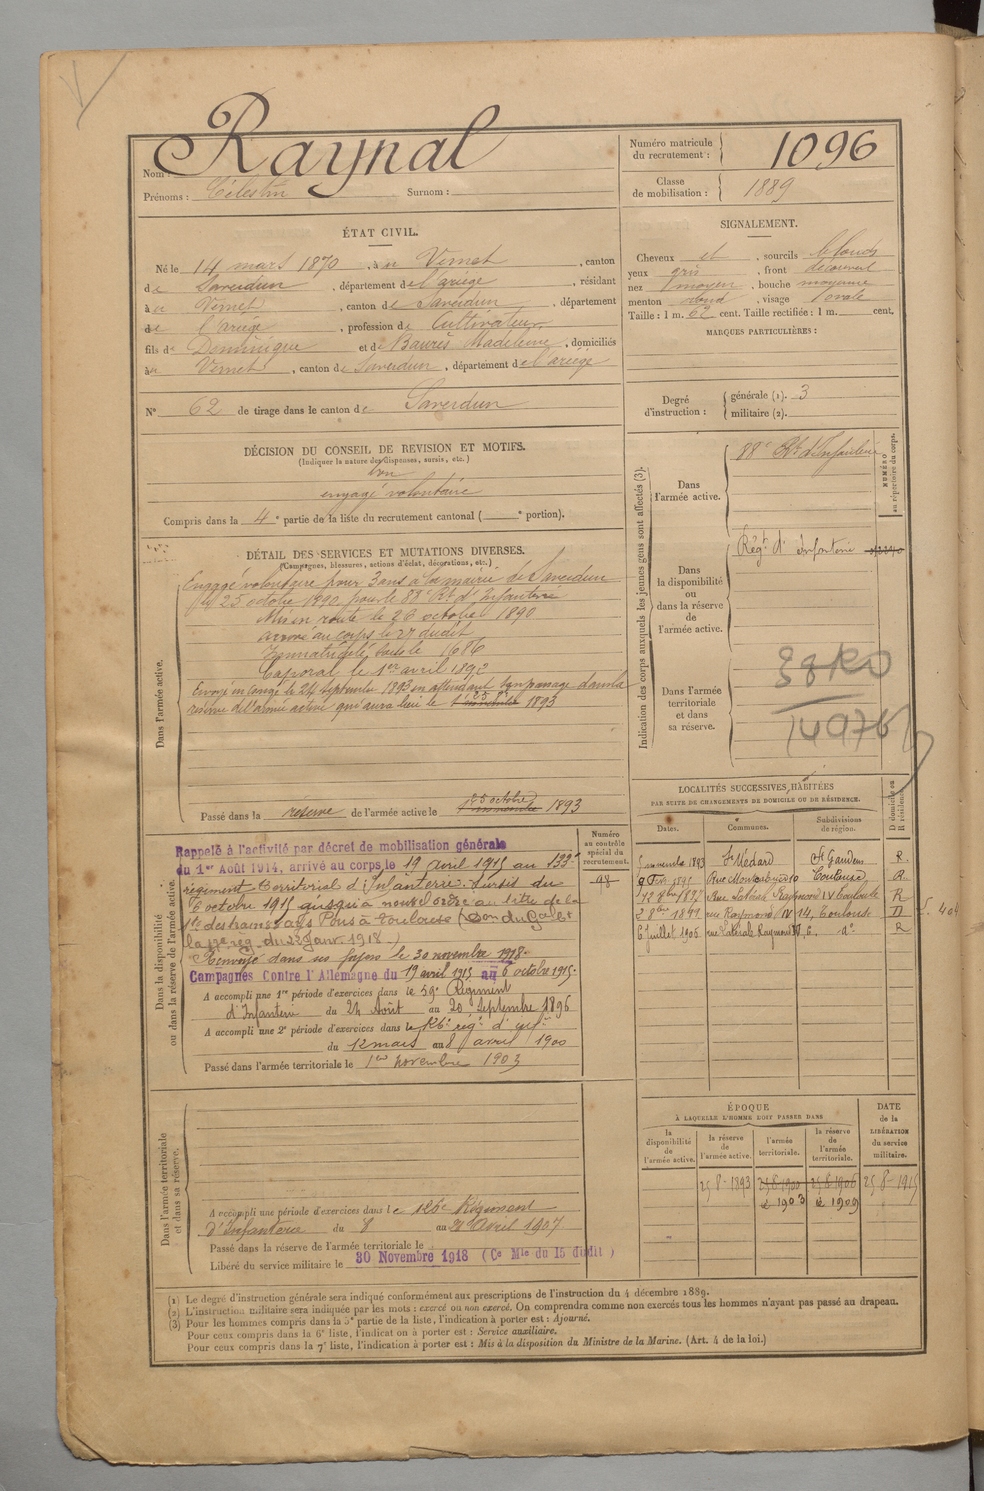 Nom : Raynal
Prénoms : Célestin Surnom :
Numéro matricule du recrutement : 1096
Classe de mobilisation : 1889
ÉTAT CIVIL.
Né le 14 mars 1870, à u Vernet, canton
de Saverdun, département de l'ariège, résidant
à u Vernet, canton de Saverdun, département
de l'ariège, profession de Cultivateur
fils de Dominique et de Baurès Madeleine, domiciliés
à u Vernet, canton de Saverdun, département de l'ariège
N° 62 de tirage dans le canton de Saverdun
SIGNALEMENT.
Cheveux et, sourcils blonds
yeux gris, front découvert
nez moyen, bouche moyenne
menton rond, visage ovale
Taille : 1 m. 62 cent. Taille rectifiée : 1 m. cent.
MARQUES PARTICULIÈRES :
Degré d'instruction : générale (1). 3
militaire (2).
DÉCISION DU CONSEIL DE REVISION ET MOTIFS.
(Indiquer la nature des dispenses, sursis, etc.)
bon
engagé volontaire
Compris dans la 4e partie de la liste du recrutement cantonal ( e portion).
DÉTAIL DES SERVICES ET MUTATIONS DIVERSES.
(Campagnes, blessures, actions d'éclat, décorations, etc.)
Dans l'armée active.
Engagé volontaire pour 3 ans à la mairie de Saverdun
le 25 octobre 1890 pour le 88e Rt d'Infanterie
Mis en route le 26 octobre 1890
arrivé au corps le 27 dudit
Immatriculé sous le 1686
Caporal le 1er avril 1892
Envoyé en congé le 24 septembre 1893 en attendant son passage dans la
réserve de l'armée active qui aura lieu le 25 8bre 1893
Passé dans la réserve de l'armée active le 25 octobre 1893
Indication des corps auxquels les jeunes gens sont affectés (3).
Dans l'armée active.
88e Rt d'Infanterie
NUMÉRO au répertoire du corps.
Dans la disponibilité ou dans la réserve de l'armée active.
Régt d'Infanterie
Dans l'armée territoriale et dans sa réserve.
14976
LOCALITÉS SUCCESSIVES HABITÉES
PAR SUITE DE CHANGEMENTS DE DOMICILE OU DE RÉSIDENCE.
Dates. Communes. Subdivisions de région. D domicile ou R résidence.
5 novembre 1893 St Médard St Gaudens R.
9 Fév. 1895 Toulouse R
12 8bre 1897 Rue Latérale Raymond IV Toulouse R
28bre 1899 rue Raymond IV 14, Toulouse D
6 juillet 1906 rue Latérale Raymond IV, 6. do R
Dans la disponibilité ou dans la réserve de l'armée active.
Numéro au contrôle spécial du recrutement.
98
Rappelé à l'activité par décret de mobilisation générale
du 1er Août 1914, arrivé au corps le 19 avril 1915 au 133e
régiment territorial d'Infanterie. Sursis du
6 octobre 1915 jusqu'à nouvel ordre au titre de la
Pons à Toulouse
la 17e rég. du 22 janv. 1918)
Renvoyé dans ses foyers le 30 novembre 1918.
Campagnes Contre l'Allemagne du 19 avril 1915 au 6 octobre 1915.
A accompli une 1re période d'exercices dans le 59e Régiment
d'Infanterie du 24 Août au 20 Septembre 1896
A accompli une 2e période d'exercices dans le 126e régt d'infie
du 12 mars au 8 avril 1900
Passé dans l'armée territoriale le 1er novembre 1903
Dans l'armée territoriale et dans sa réserve.
A accompli une période d'exercices dans le 126e Régiment
d'Infanterie du 8 au Avril 1907
Passé dans la réserve de l'armée territoriale le
Libéré du service militaire le 30 Novembre 1918 (Ce Mle du 15 dudit)
ÉPOQUE
À LAQUELLE L'HOMME DOIT PASSER DANS
la disponibilité de l'armée active.
la réserve de l'armée active.
l'armée territoriale.
la réserve de l'armée territoriale.
DATE de la LIBÉRATION du service militaire.
25 8- 1893 25 8 1900 25 8 1906 25 8- 1915
1903 1909
(1) Le degré d'instruction générale sera indiqué conformément aux prescriptions de l'instruction du 4 décembre 1889.
(2) L'instruction militaire sera indiquée par les mots : exercé ou non exercé. On comprendra comme non exercés tous les hommes n'ayant pas passé au drapeau.
(3) Pour les hommes compris dans la 5e partie de la liste, l'indication à porter est : Ajourné.
Pour ceux compris dans la 6e liste, l'indication à porter est : Service auxiliaire.
Pour ceux compris dans la 7e liste, l'indication à porter est : Mis à la disposition du Ministre de la Marine. (Art. 4 de la loi.)